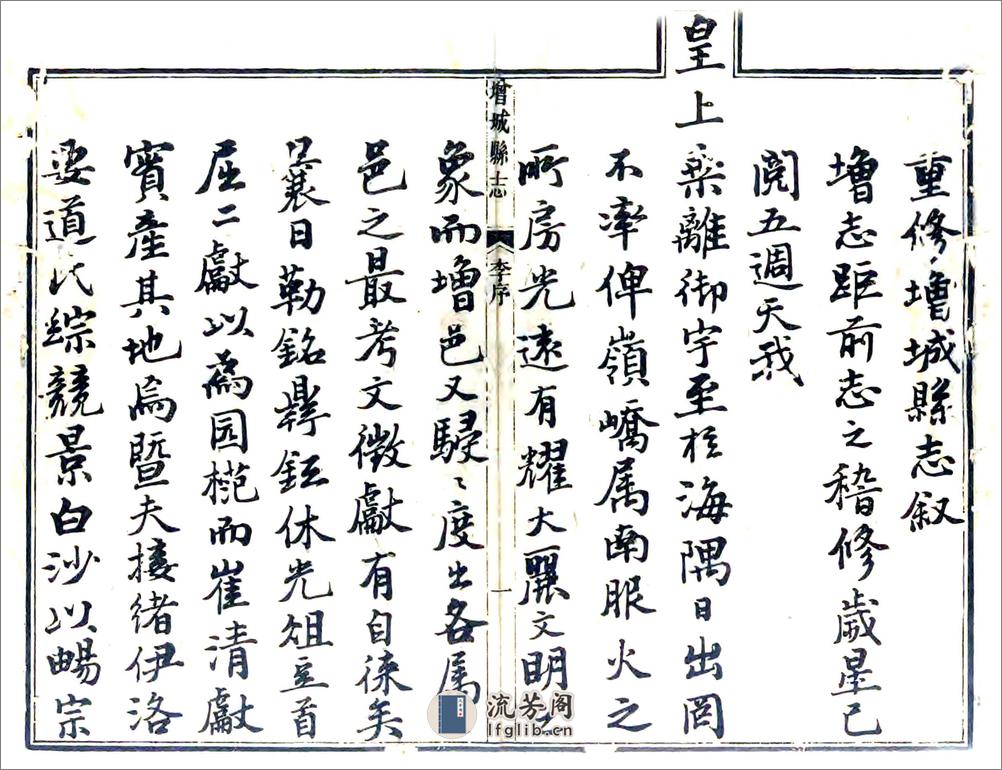 重修增城縣志叙
增志距前志之稽修歲星已
閱五週天我
皇上乘離御宇至於海隅日出罔
不率俾嶺嶠属南服火之
所房光遠有耀大麗文明之
象而增邑又駸〻度出各属
邑之最考文徵獻有自徠矣
曩日勒銘鼎鉉休光俎豆首
屈二獻以為园模而崔清獻
實產其地焉暨夫接緒伊洛
婁道氏綜競景白沙以暢宗
增城縣志
李序
一
流芳阁
lfglib.cn